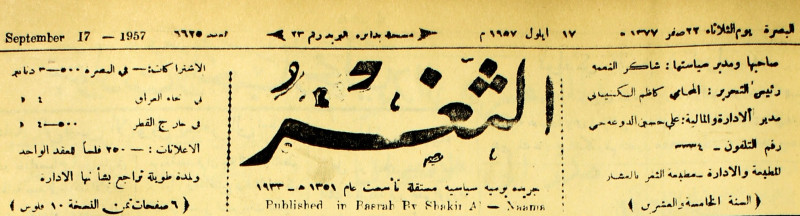 البصرة يوم الثلاثاء ٢٢ صفر ١٣٧٧ ه
١٧ ايلول ١٩٥٧ م
مسجلة بدائرة البريد رقم ٢٣
العدد ٦٦٢٥
September 17 - 1957
صاحبها ومدير سياستها : شاكر النعمه
رئيس التحرير : المحامي كاظم
مدير الادارة والمالية : علي حسين
رقم التلفون - ٣٣٣٤
المطبعة والادارة - مطبعة الثغر بالعشار
( السنة الخامسة والعشرين )
الثغر
جريدة يومية سياسية مستقلة تأسست عام ١٣٥١ ه - ١٩٣٣
Published in Basrah By Shakir Al - Naama
الاشتراكات : - في البصرة ٥٠٠ - ٣ دنانير
في انحاء العراق ٤ »
في خارج القطر ٥٠٠ - ٤ »
الاعلانات : - ٢٥٠ فلساً للعقد الواحد
ولمدة طويلة تراجع بشأنها الادارة
( ٦ صفحات ثمن النسخة ١٠ فلوس )